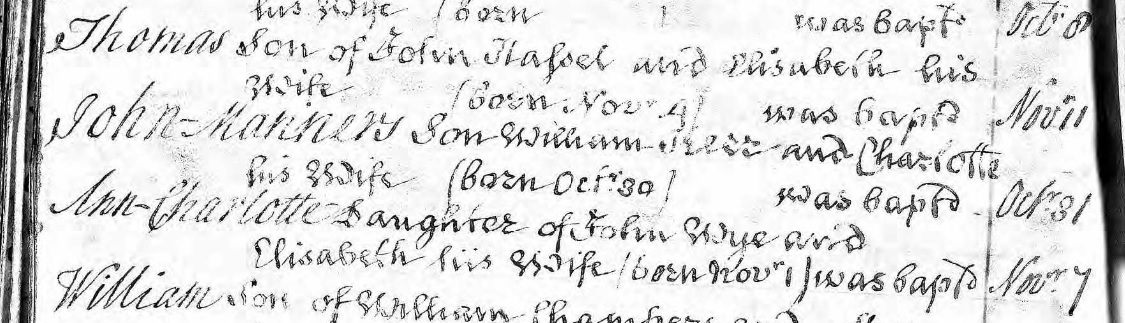 his Wife (born was bapt.d Oct.r 8
Thomas Son of John Hassel and Elisabeth his
Wife (born Nov.r 9) was bapt.d Nov.r 11
John-Manners Son William Kerr and Charlotte
his Wife (born Oct.r 30) was bapt.d Oct.r 31
Ann-Charlotte Daughter of John Wye and
Elisabeth his Wife (born Nov.r 1) was bapt.d Nov.r 7
William Son of William Chambers and